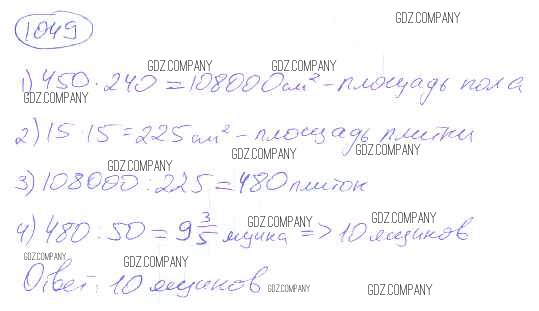 1049
GDZ.COMPANY
GDZ.COMPANY GDZ.COMPANY
1) 450 · 240 = 108000 см² - площадь пола
GDZ.COMPANY
2) 15 · 15 = 225 см² - площадь плитки
GDZ.COMPANY GDZ.COMPANY GDZ.COMPANY
3) 108000 : 225 = 480 плиток
4) 480 : 50 = 9 3/5 ящика => 10 ящиков
GDZ.COMPANY GDZ.COMPANY
GDZ.COMPANY GDZ.COMPANY
Ответ: 10 ящиков
GDZ.COMPANY GDZ.COMPANY